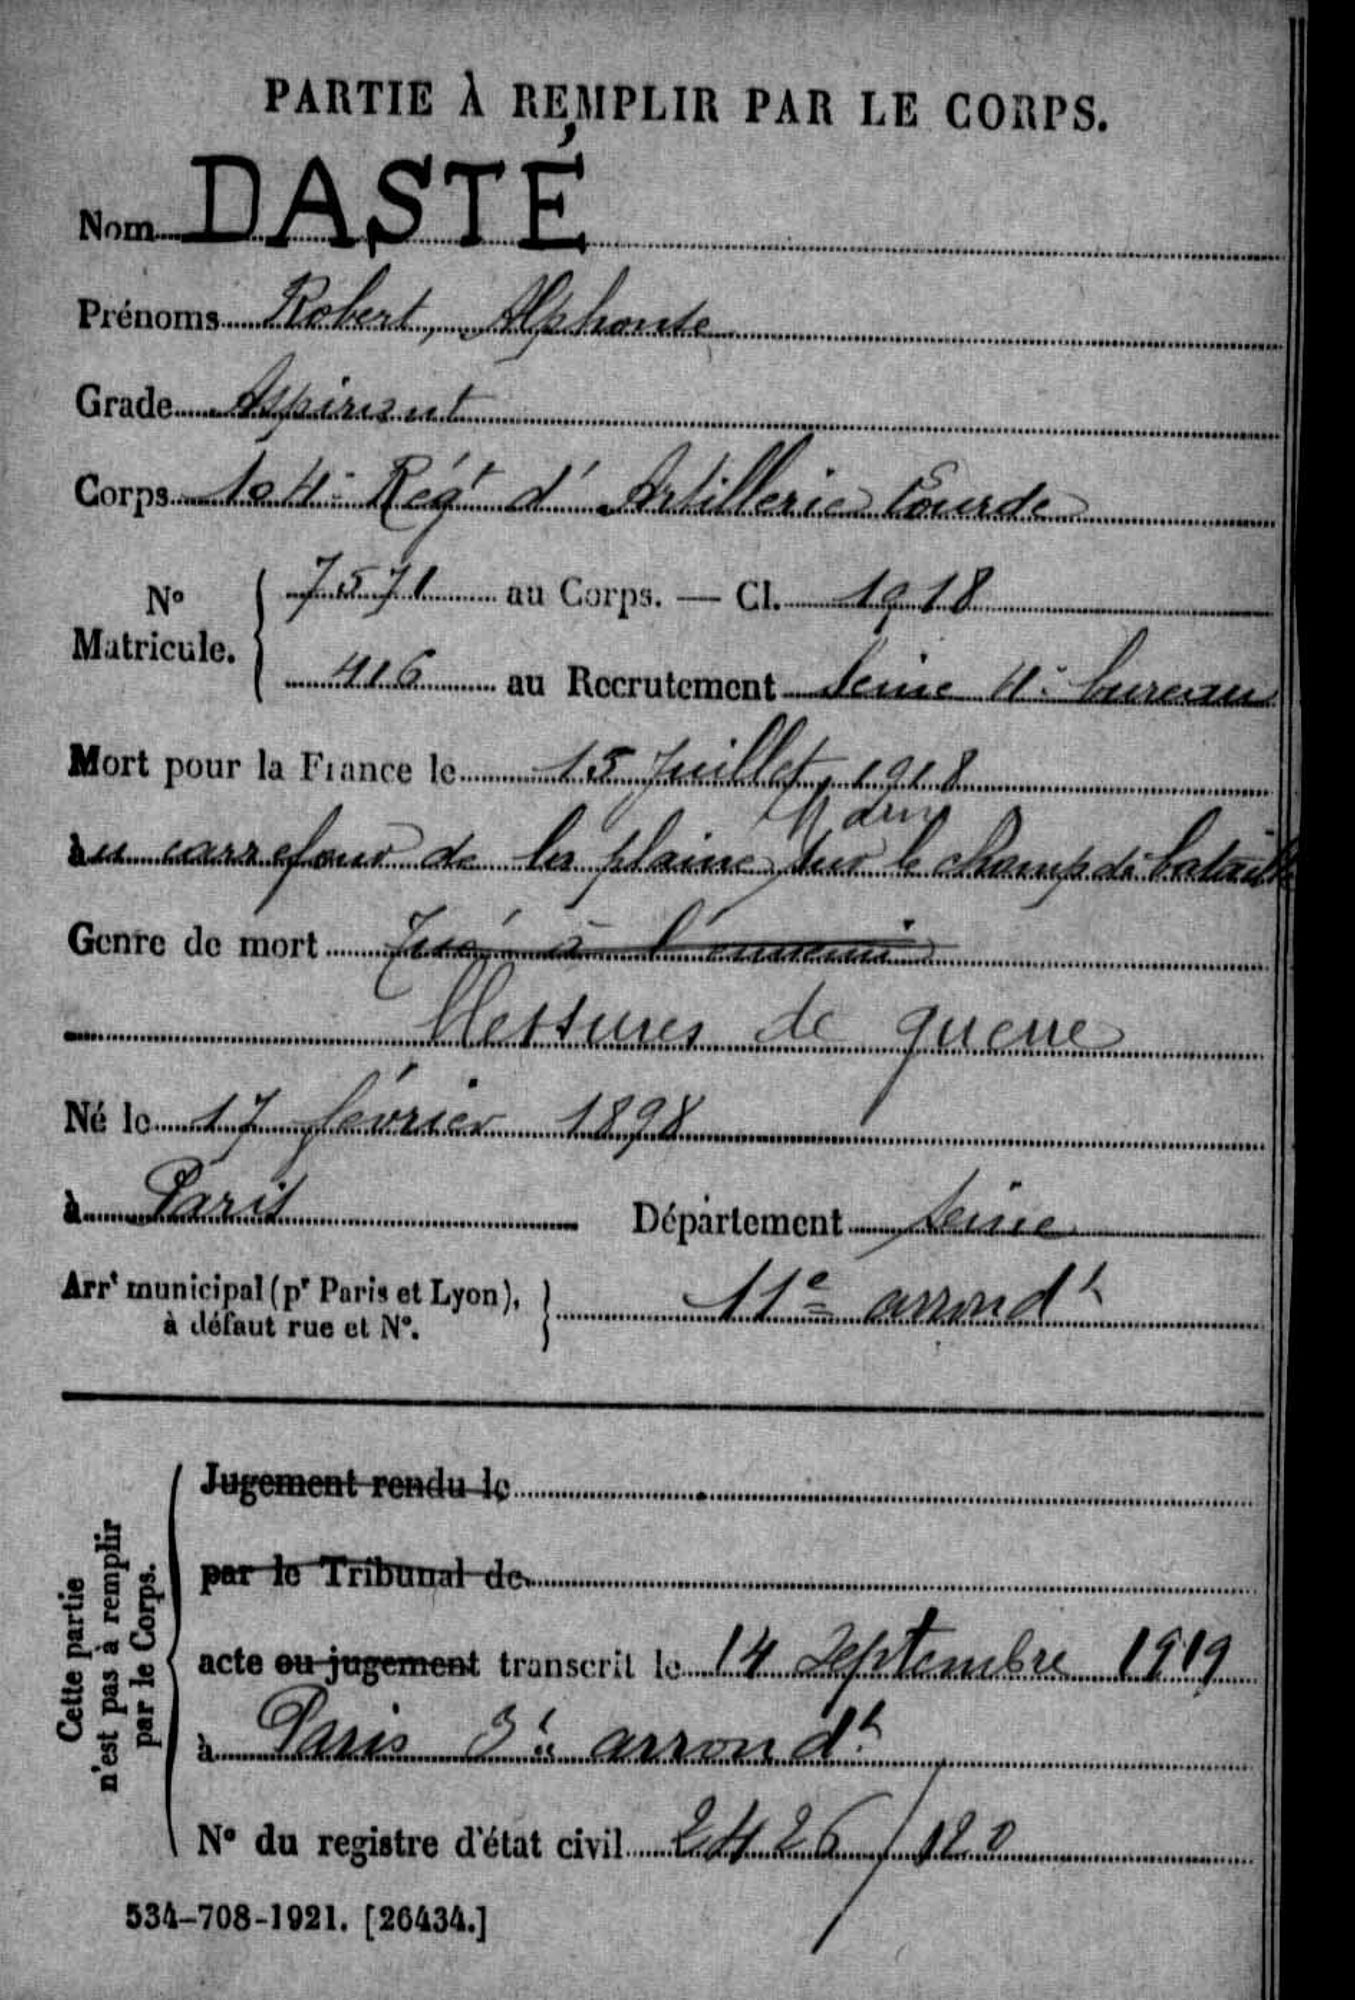 PARTIE À REMPLIR PAR LE CORPS.
Nom DASTÉ
Prénoms Robert, Alphonse
Grade Aspirant
Corps 104e Régt d'Artillerie Lourde
No Matricule. 7571 au Corps. — Cl. 1918
416 au Recrutement Seine 4e bureau
Mort pour la France le 15 Juillet 1918
Marne
au carrefour de la plaine sur le champ de bataille
Genre de mort Tué à l'ennemi
blessures de guerre
Né le 17 février 1898
à Paris Département Seine
Arrt municipal (pr Paris et Lyon), à défaut rue et No. 11e arrondt
Cette partie n'est pas à remplir par le Corps.
Jugement rendu le
par le Tribunal de
acte ou jugement transcrit le 14 Septembre 1919
à Paris 3e arrondt
No du registre d'état civil 2426/120
534-708-1921. [26434.]